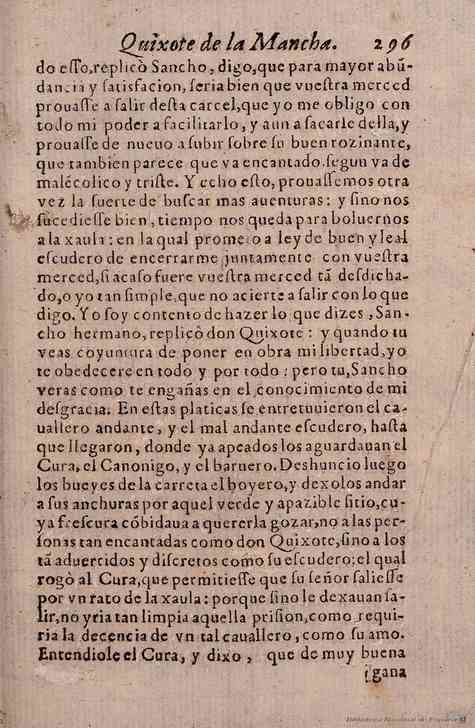 Quixote de la Mancha. 296
do eſſo, replicò Sancho, digo, que para mayor abũ-
dancia y ſatisfacion, ſeria bien que vueſtra merced
prouaſſe a ſalir deſta carcel, que yo me obligo con
todo mi poder a facilitarlo, y aun a ſacarle della, y
prouaſſe de nueuo a ſubir ſobre ſu buen rozinante,
que tambien parece que va encantado, ſegun va de
malẽcolico y triſte. Y echo eſto, prouaſſemos otra
vez la ſuerte de buſcar mas auenturas: y ſino nos
ſucedieſſe bien, tiempo nos queda para boluernos
a la xaula: en la qual prometo a ley de buen y leal
eſcudero de encerrarme juntamente con vueſtra
merced, ſi acaſo fuere vueſtra merced tã deſdicha-
do, o yo tan ſimple, que no acierte a ſalir con lo que
digo. Yo ſoy contento de hazer lo que dizes, San-
cho hermano, replicò don Quixote: y quando tu
veas coyuntura de poner en obra mi libertad, yo
te obedecere en todo y por todo: pero tu, Sancho
veras como te engañas en el conocimiento de mi
deſgracia. En eſtas platicas ſe entretuuieron el ca-
uallero andante, y el mal andante eſcudero, haſta
que llegaron, donde ya apeados los aguardauan el
Cura, el Canonigo, y el baruero. Deshuncio luego
los bueyes de la carreta el boyero, y dexolos andar
a ſus anchuras por aquel verde y apazible ſitio, cu-
ya freſcura cõbidaua a quererla gozar, no a las per-
ſonas tan encantadas como don Quixote, ſino a los
tã aduertidos y diſcretos como ſu eſcudero: el qual
rogò al Cura, que permitieſſe que ſu ſeñor ſalieſſe
por vn rato de la xaula: porque ſino le dexauan ſa-
lir, no yria tan limpia aquella priſion, como requi-
ria la decencia de vn tal cauallero, como ſu amo.
Entendiole el Cura, y dixo, que de muy buena
gana
Biblioteca Nacional de España